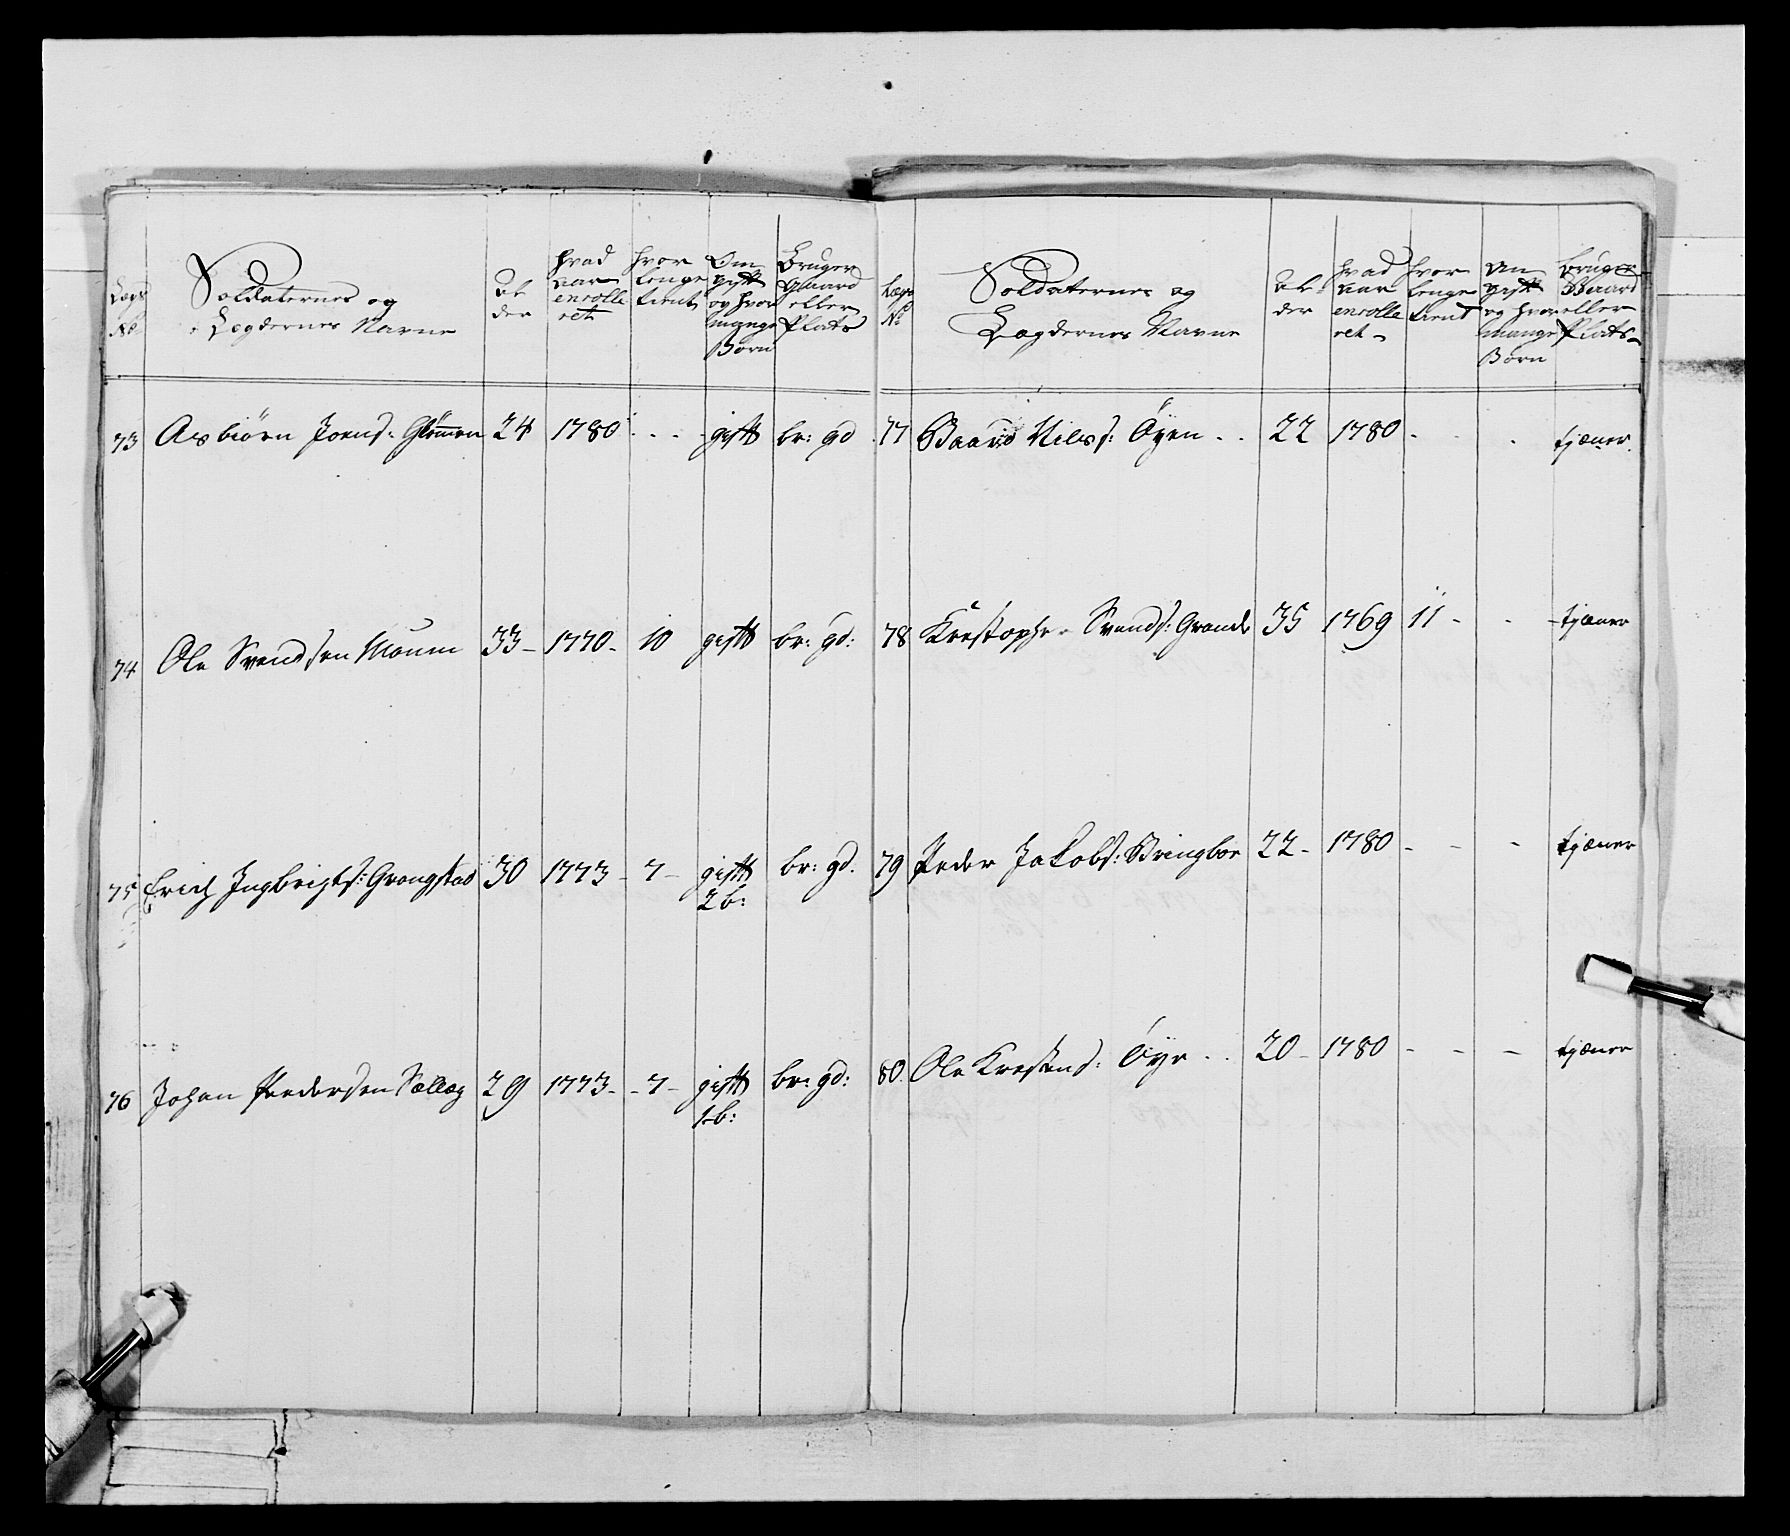 Lægs No:
Soldaternes og Lægdernes Navne
Alder
hvad aar enrolleret
hvor lenge tient
Om gift og hvor mange Børn
Bruger Gaard eller Plads
73 Asbiörn Joens: Glömmen 24 1780 . . . gift br: gd
74 Ole Svendsen Moum 33 – 1770 – 10 gift br: gd:
75 Erich Ingbrigts: Grongstad 30 1773 – 7 – gift br: gd.
2 b:
76 Johan Peedersen Sællæg 29 1773 – – 7 – gift br: gd:
1 b:
Lægs No
Soldaternes og Lægdernes Navne
Alder
hvad aar enrolleret –
hvor lenge tient
om gift og hvor mange Børn
bruger Gaard eller Plads –
77 Baard Nilss: Öyen . . 22 1780 . . . tjæner.
78 Krestopher Svends: Grande 35 1769 11 – . – tjæner
79 Peder Jakobs: Bringboe 22 – 1780 – – – tjæner
80 Ole Krestens: Öye . . 20 – 1780 – – – tjæner